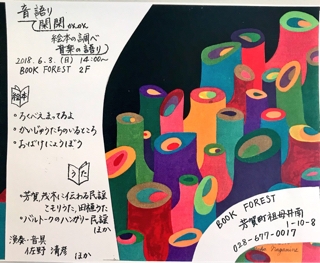 音語り
て開開
絵本の調べ
音楽の語り
2018.6.3.(日) 14:00〜
BOOK FOREST 2F
絵本
・ろくべえまってろよ
・かいじゅうたちのいるところ
・おばけにょうぼう
うた
・芳賀、茂木に伝わる民謡
こもりうた、田植うた
・バルトークのハンガリー民謡
ほか
演奏・音具
佐野 清彦
ほか
BOOK FOREST
芳賀町祖母井南
1-10-8
028-677-0017